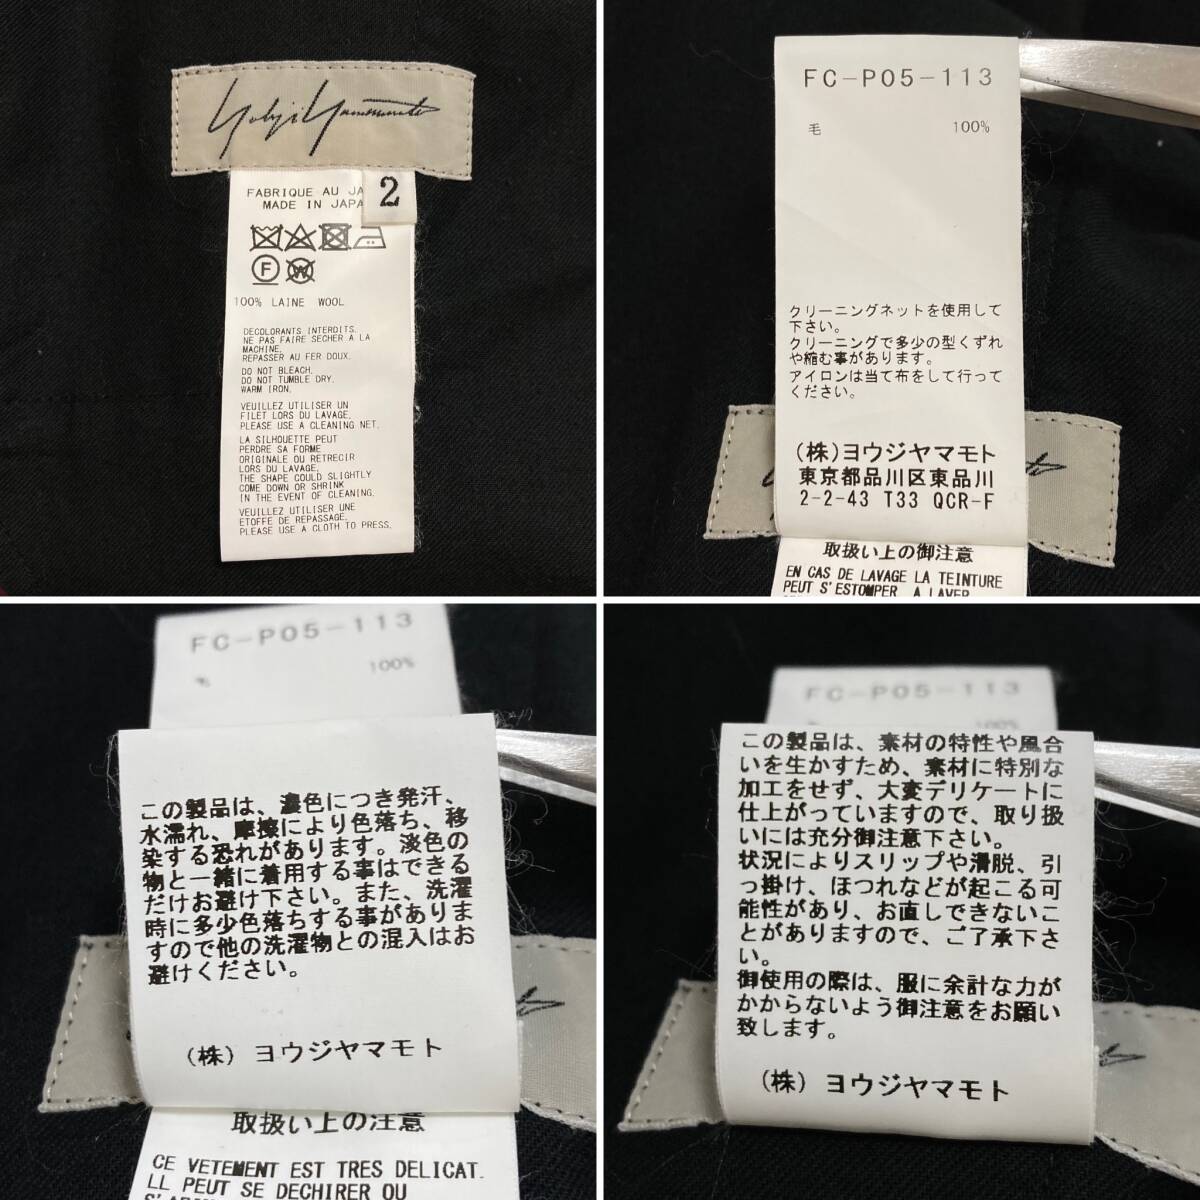 Yohji Yamamoto
FABRIQUE AU JA
MADE IN JAPA
2
F
W
100% LAINE WOOL
DECOLORANTS INTERDITS.
NE PAS FAIRE SECHER A LA
MACHINE.
REPASSER AU FER DOUX.
DO NOT BLEACH.
DO NOT TUMBLE DRY.
WARM IRON.
VEUILLEZ UTILISER UN
FILET LORS DU LAVAGE.
PLEASE USE A CLEANING NET.
LA SILHOUETTE PEUT
PERDRE SA FORME
ORIGINALE OU RETRECIR
LORS DU LAVAGE.
THE SHAPE COULD SLIGHTLY
COME DOWN OR SHRINK
IN THE EVENT OF CLEANING.
VEUILLEZ UTILISER UNE
ETOFFE DE REPASSAGE.
PLEASE USE A CLOTH TO PRESS.
FC-P05-113
毛 100%
クリーニングネットを使用して
下さい。
クリーニングで多少の型くずれ
や縮む事があります。
アイロンは当て布をして行って
ください。
(株)ヨウジヤマモト
東京都品川区東品川
2-2-43 T33 QCR-F
取扱い上の御注意
EN CAS DE LAVAGE LA TEINTURE
PEUT S'ESTOMPER A LAVER
FC-P05-113
毛 100%
この製品は、濃色につき発汗、
水濡れ、摩擦により色落ち、移
染する恐れがあります。淡色の
物と一緒に着用する事はできる
だけお避け下さい。また、洗濯
時に多少色落ちする事がありま
すので他の洗濯物との混入はお
避けください。
(株) ヨウジヤマモト
取扱い上の注意
CE VETEMENT EST TRES DELICAT.
LL PEUT SE DECHIRER OU
FC-P05-113
100%
この製品は、素材の特性や風合
いを生かすため、素材に特別な
加工をせず、大変デリケートに
仕上がっていますので、取り扱
いには充分御注意下さい。
状況によりスリップや滑脱、引
っ掛け、ほつれなどが起こる可
能性があり、お直しできないこ
とがありますので、ご了承下さ
い。
御使用の際は、服に余計な力が
かからないよう御注意をお願い
致します。
(株) ヨウジヤマモト